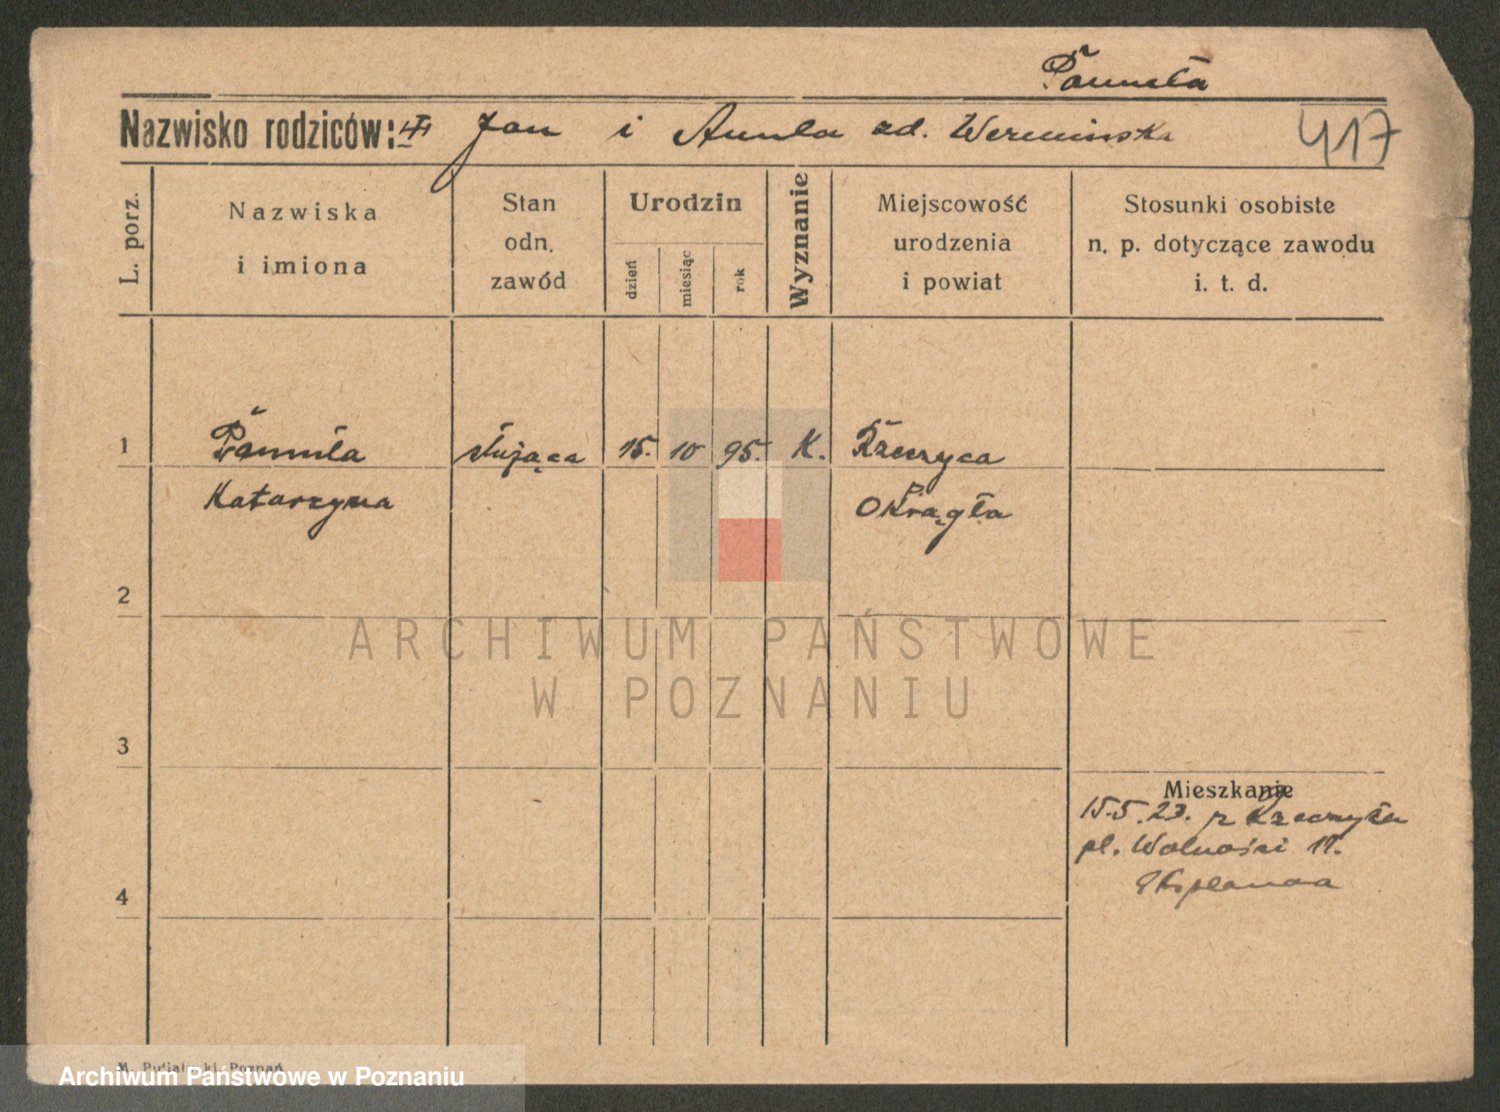 Nazwisko rodziców: Jan i
zd.
417
L. porz.
Nazwiska
i imiona
Stan
odn.
zawód
Urodzin
dzień
miesiąc
rok
Wyznanie
Miejscowość
urodzenia
i powiat
Stosunki osobiste
n. p. dotyczące zawodu
i. t. d.
1
służąca 15. 10 95. K.
Katarzyna
Okrągła
2
ARCHIWUM PAŃSTWOWE
W POZNANIU
3
Mieszkanie
15.5.23. z
pl. Wolności 17.
4
Poznań
Archiwum Państwowe w Poznaniu